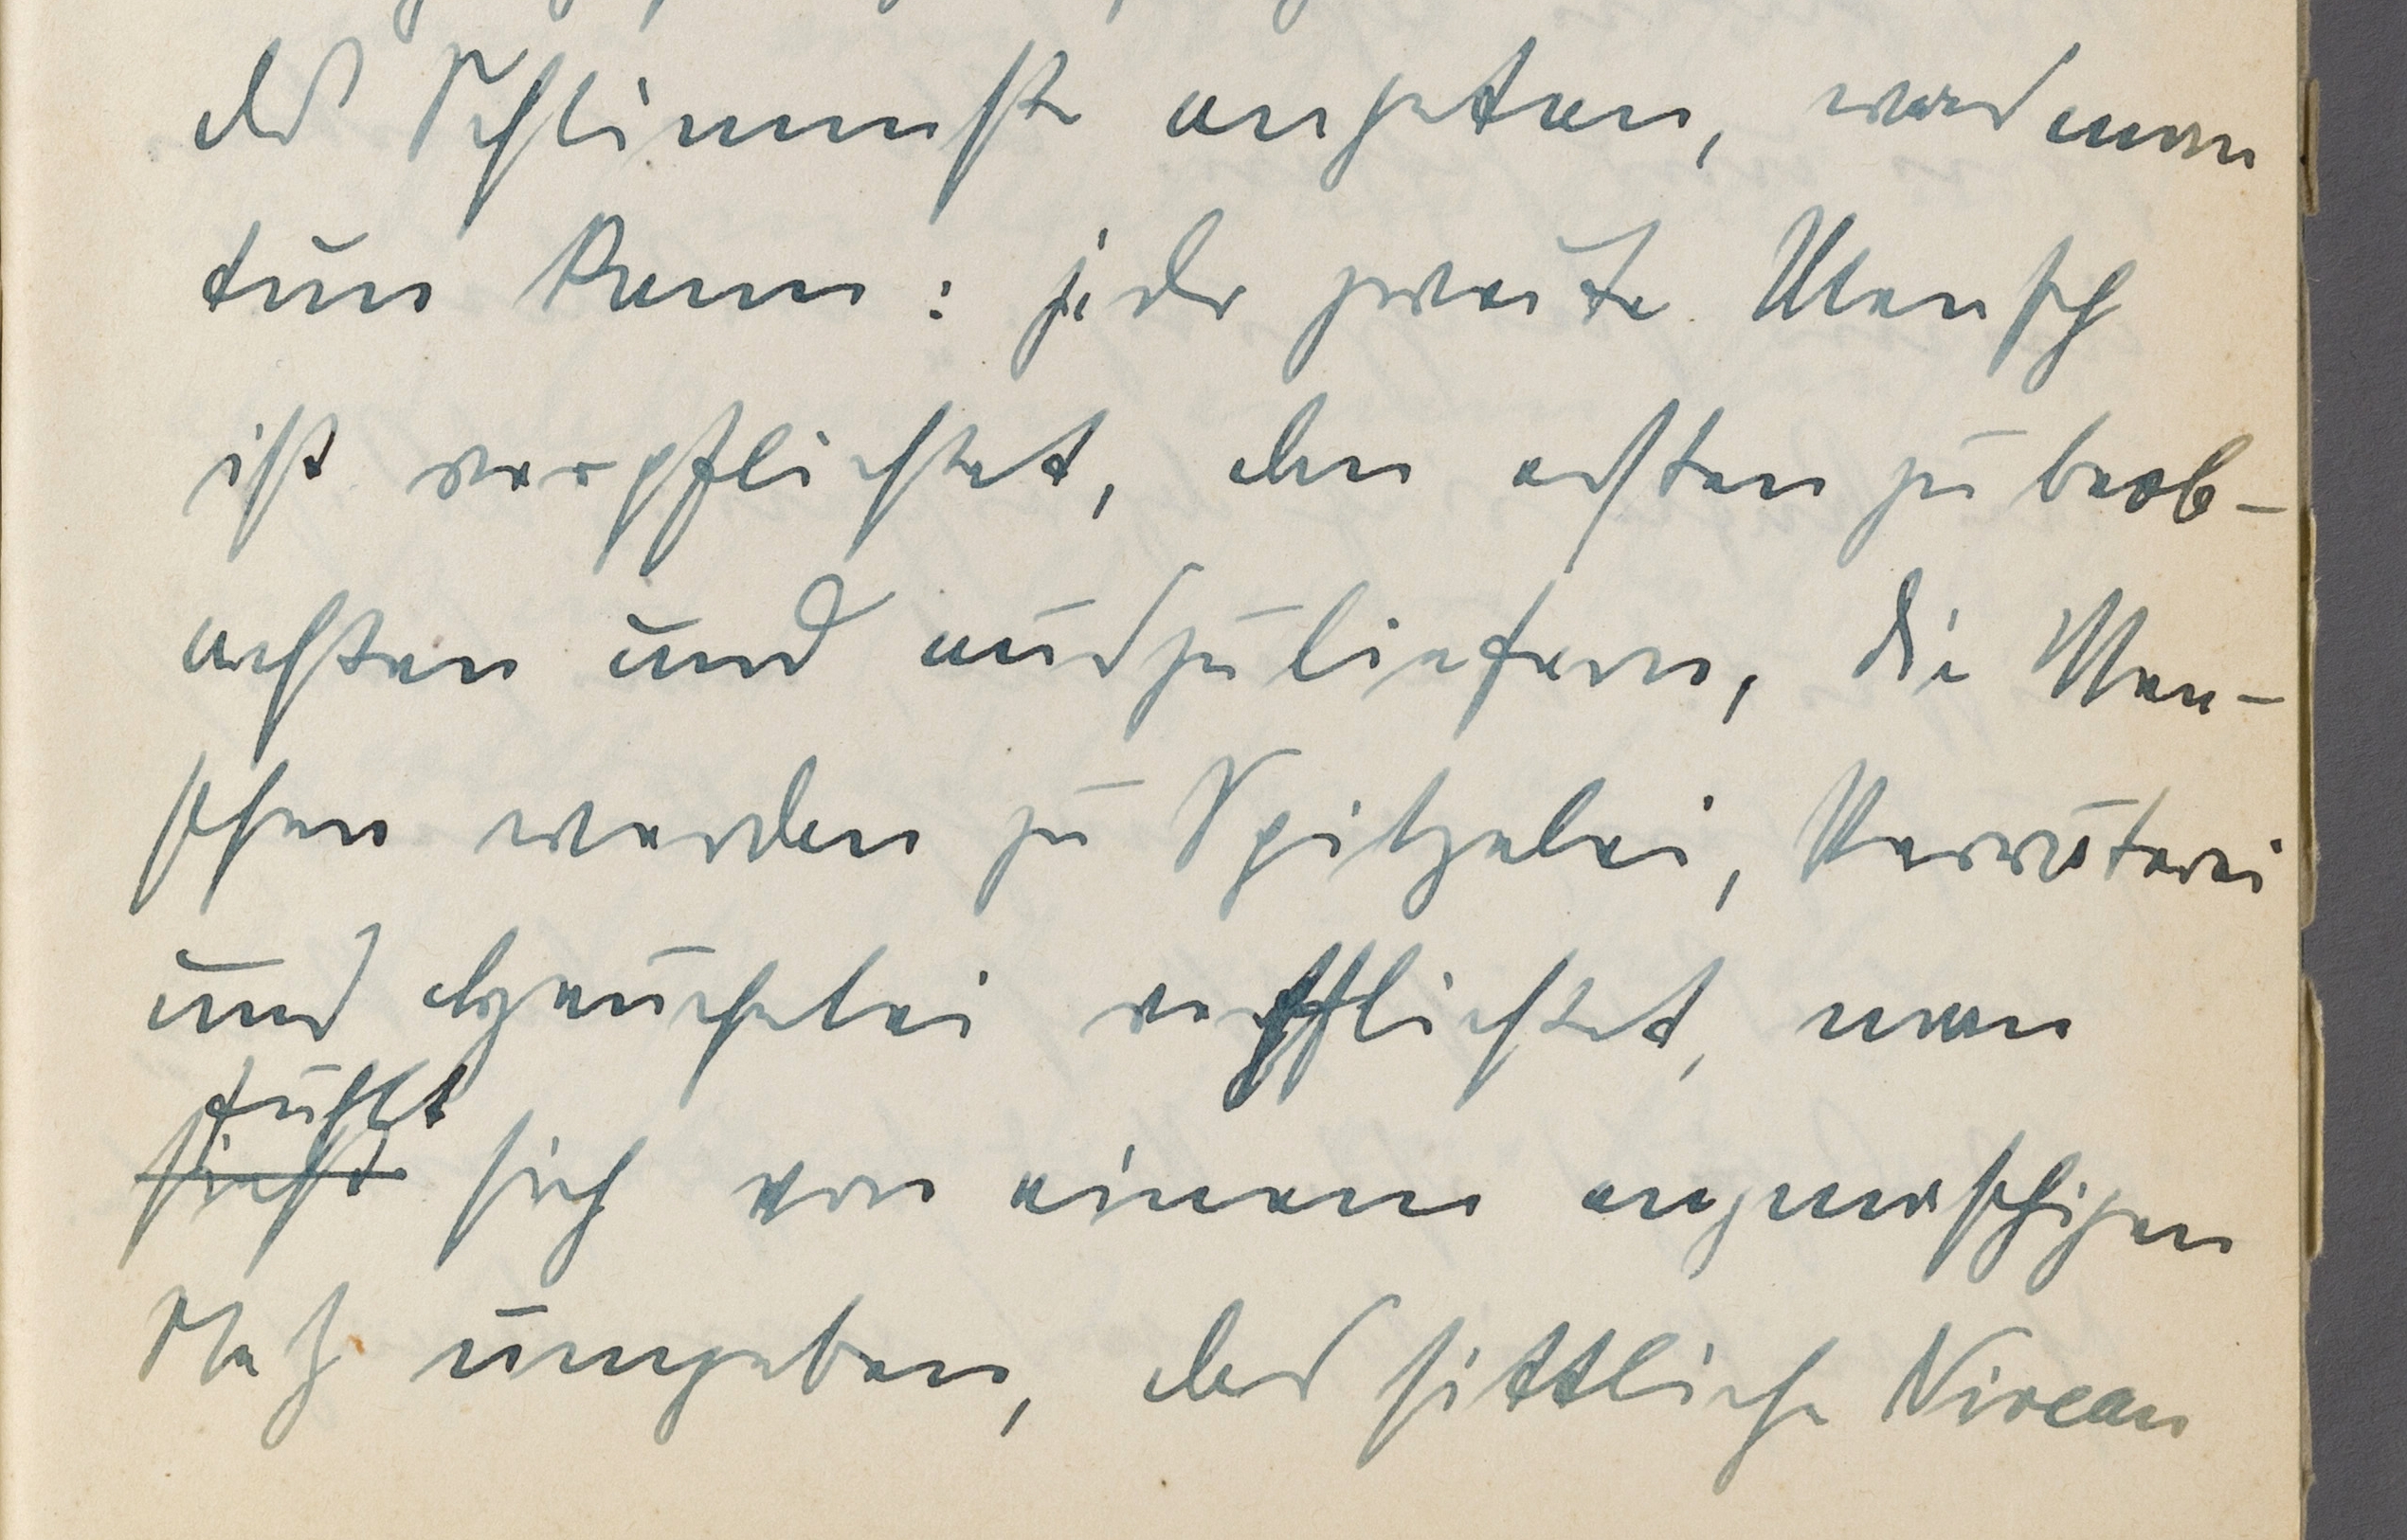 das Schlimmste angetan, was man
tun kann: jeder zweite Mensch
ist verpflichtet, den ersten zu beob-
achten und auszuliefern, die Men-
schen werden zu Spitzelei, Verräterei
und Heuchelei verpflichtet, man
fühlt
sieht sich von einem engmaschigen
Netz umgeben, das sittliche Niveau